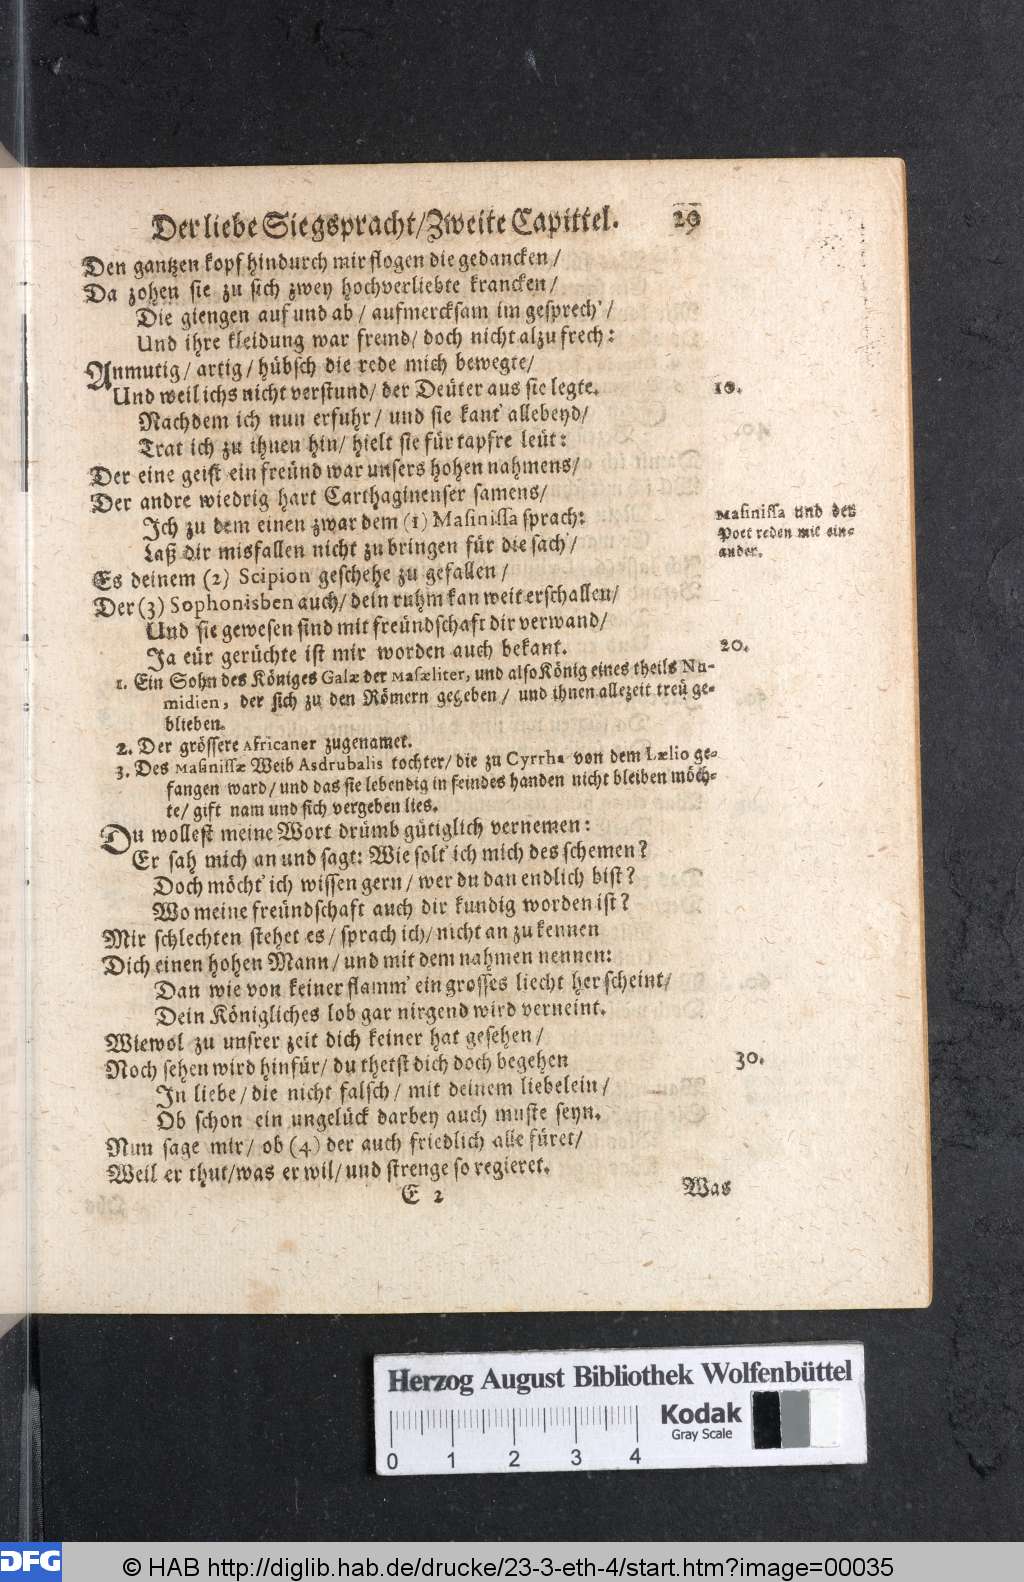 Der liebe Siegspracht/Zweite Capittel. 29
Den gantzen kopf hindurch mir flogen die gedancken/
Da zohen sie zu sich zwey hochverliebte krancken/
Die giengen auf und ab/ aufmercksam im gesprech'/
Und ihre kleidung war fremd/ doch nicht alzu frech:
Anmutig/ artig/ hübsch die rede mich bewegte/
Und weil ichs nicht verstund/ der Deüter aus sie legte. 10.
Nachdem ich nun erfuhr/ und sie kant' allebeyd/
Trat ich zu ihnen hin/ hielt sie für tapfre leüt:
Der eine geist ein freünd war unsers hohen nahmens/
Der andre wiedrig hart Carthaginenser samens/
Ich zu dem einen zwar dem (1) Masinissa sprach:
Masinissa und der
Poet reden mit ein-
ander.
Laß dir misfallen nicht zu bringen für die sach'/
Es deinem (2) Scipion geschehe zu gefallen/
Der (3) Sophonisben auch/ dein ruhm kan weit erschallen/
Und sie gewesen sind mit freündschaft dir verwand/
Ja eür gerüchte ist mir worden auch bekant. 20.
1. Ein Sohn des Königes Galæ der Masæliter, und also König eines theils Nu-
midien, der sich zu den Römern gegeben/ und ihnen allezeit treü ge-
blieben.
2. Der grössere Africaner zugenamet.
3. Des Masinissæ Weib Asdrubalis tochter/ die zu Cyrrha von dem Lælio ge-
fangen ward/ und das sie lebendig in feindes handen nicht bleiben möch-
te/ gift nam und sich vergeben lies.
Du wollest meine Wort drümb gütiglich vernemen:
Er sah mich an und sagt: Wie solt' ich mich des schemen?
Doch möcht' ich wissen gern/ wer du dan endlich bist?
Wo meine freündschaft auch dir kundig worden ist?
Mir schlechten stehet es/ sprach ich/ nicht an zu kennen
Dich einen hohen Mann/ und mit dem nahmen nennen:
Dan wie von keiner flamm' ein grosses liecht her scheint/
Dein Königliches lob gar nirgend wird verneint.
Wiewol zu unsrer zeit dich keiner hat gesehen/
Noch sehen wird hinfür/ du thetst dich doch begehen 30.
In liebe/ die nicht falsch/ mit deinem liebelein/
Ob schon ein ungelück darbey auch muste seyn.
Nun sage mir/ ob (4) der auch friedlich alle füret/
Weil er thut/was er wil/ und strenge so regieret.
E 2 Was
Herzog August Bibliothek Wolfenbüttel
Kodak
Gray Scale
0 1 2 3 4
DFG © HAB http://diglib.hab.de/drucke/23-3-eth-4/start.htm?image=00035